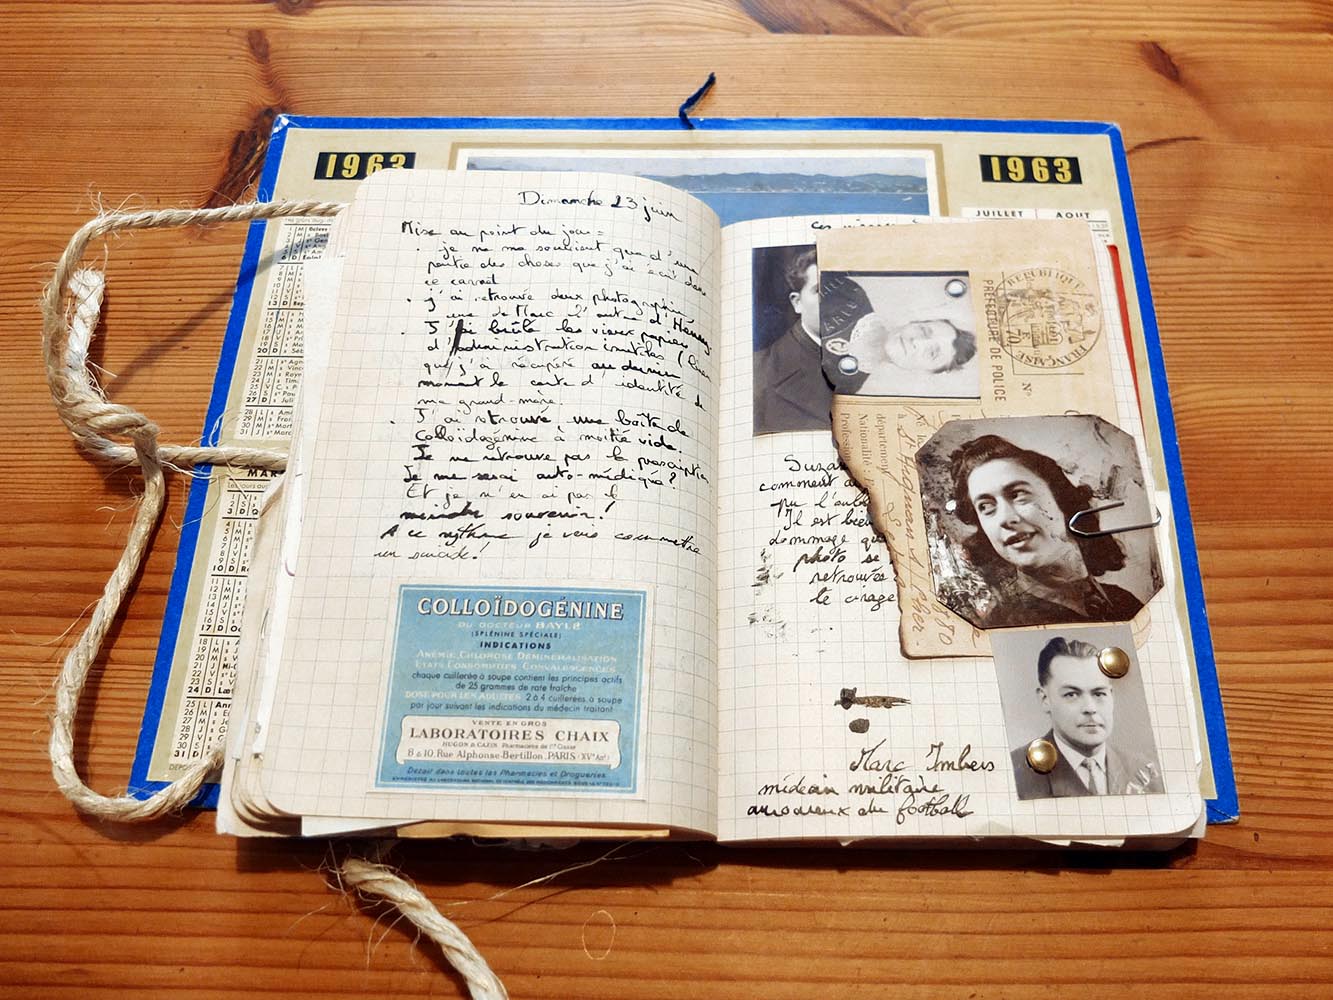 1963
1963
JUILLET AOUT
MARS
Dimanche 23 juin
Mise au point du jour =
. je ne me souvient que d'une
partie des choses que j'ai écrit dans
ce carnet
. j'ai retrouvée deux photographies
une de Marc l'autre d'Henry
. J'ai brûlé les vieux papiers
d'administration inutiles (bien
que j'ai récupéré au dernier
moment la carte d'identité de
ma grand-mère.
. J'ai retrouvé une boîte de
Colloïdogénine à moitié vide.
Je ne retrouve pas la prescription
Je me serai auto-médiqué?
Et je n'en ai pas le
moindre souvenir!
A ce rythme je vais commettre
un suicide!
COLLOÏDOGÉNINE
DU DOCTEUR BAYLE
(SPLÉNINE SPÉCIALE)
INDICATIONS
ANÉMIE CHLOROSE DÉMINÉRALISATION
ETATS CONSOMPTIFS CONVALESCENCES
chaque cuillerée à soupe contient les principes actifs
de 25 grammes de rate fraîche
DOSE POUR LES ADULTES 2 à 4 cuillerées à soupe
par jour suivant les indications du médecin traitant
VENTE EN GROS
LABORATOIRES CHAIX
HUGON & CAZIN Pharmaciens de 1re Classe
8 & 10, Rue Alphonse-Bertillon, PARIS (XVe Arrt)
Détail dans toutes les Pharmacies et Drogueries
REPUBLIQUE FRANÇAISE
PRÉFECTURE DE POLICE
N°
Nationalité
Profession
département
comment
pu l'oubl
Il est bien
dommage que
photo se
retrouvées
le cirage
Marc Imbers
médecin militaire
amoureux du football